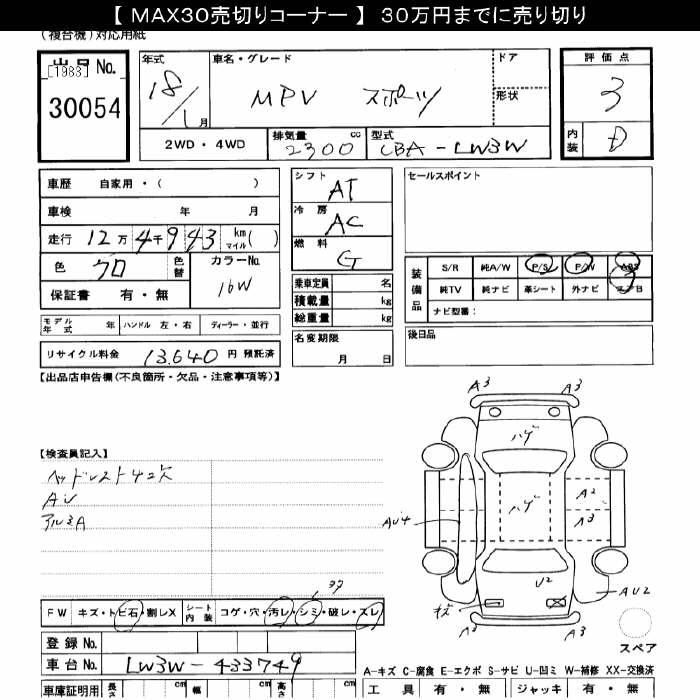 【 MAX30売切りコーナー 】 30万円までに売り切り
(複合機)対応用紙
出品 No. [1983]
30054
年式 18/1月
車名・グレード MPV スポーツ
ドア
形状
評価点 3
内装 D
2WD・4WD
排気量 2300 cc
型式 CBA-LW3W
車歴 自家用・( )
車検 年 月
走行 12万4千943 km マイル( )
色 クロ 色替
カラーNo. 16W
保証書 有・無
シフト AT
冷房 AC
燃料 G
乗車定員 名
積載量 kg
総重量 kg
名変期限 月 日
セールスポイント
装備品
S/R 純A/W P/S P/W ABS
純TV 純ナビ 革シート 外ナビ エアB
ナビ型番:
後日品
モデル年式 年 ハンドル 左・右 ディーラー・並行
リサイクル料金 13,640 円 預託済
【出品店申告欄(不良箇所・欠品・注意事項等)】
【検査員記入】
ヘッドレスト4コ欠
AU
アルミA
A3 A3
ハゲ
ハゲ
A2
A3
AU4
U2
AU2
キズ
A3 A3
スペア
コゲ
FW キズ・トビ石・割レX シート内装 コゲ・穴・汚レ・シミ・破レ・スレ
登録 No.
車台 No. LW3W-433749
A-キズ C-腐食 E-エクボ S-サビ U-凹ミ W-補修 XX-交換済
車庫証明用 長さ cm 幅 cm 高さ cm
工具 有・無 ジャッキ 有・無